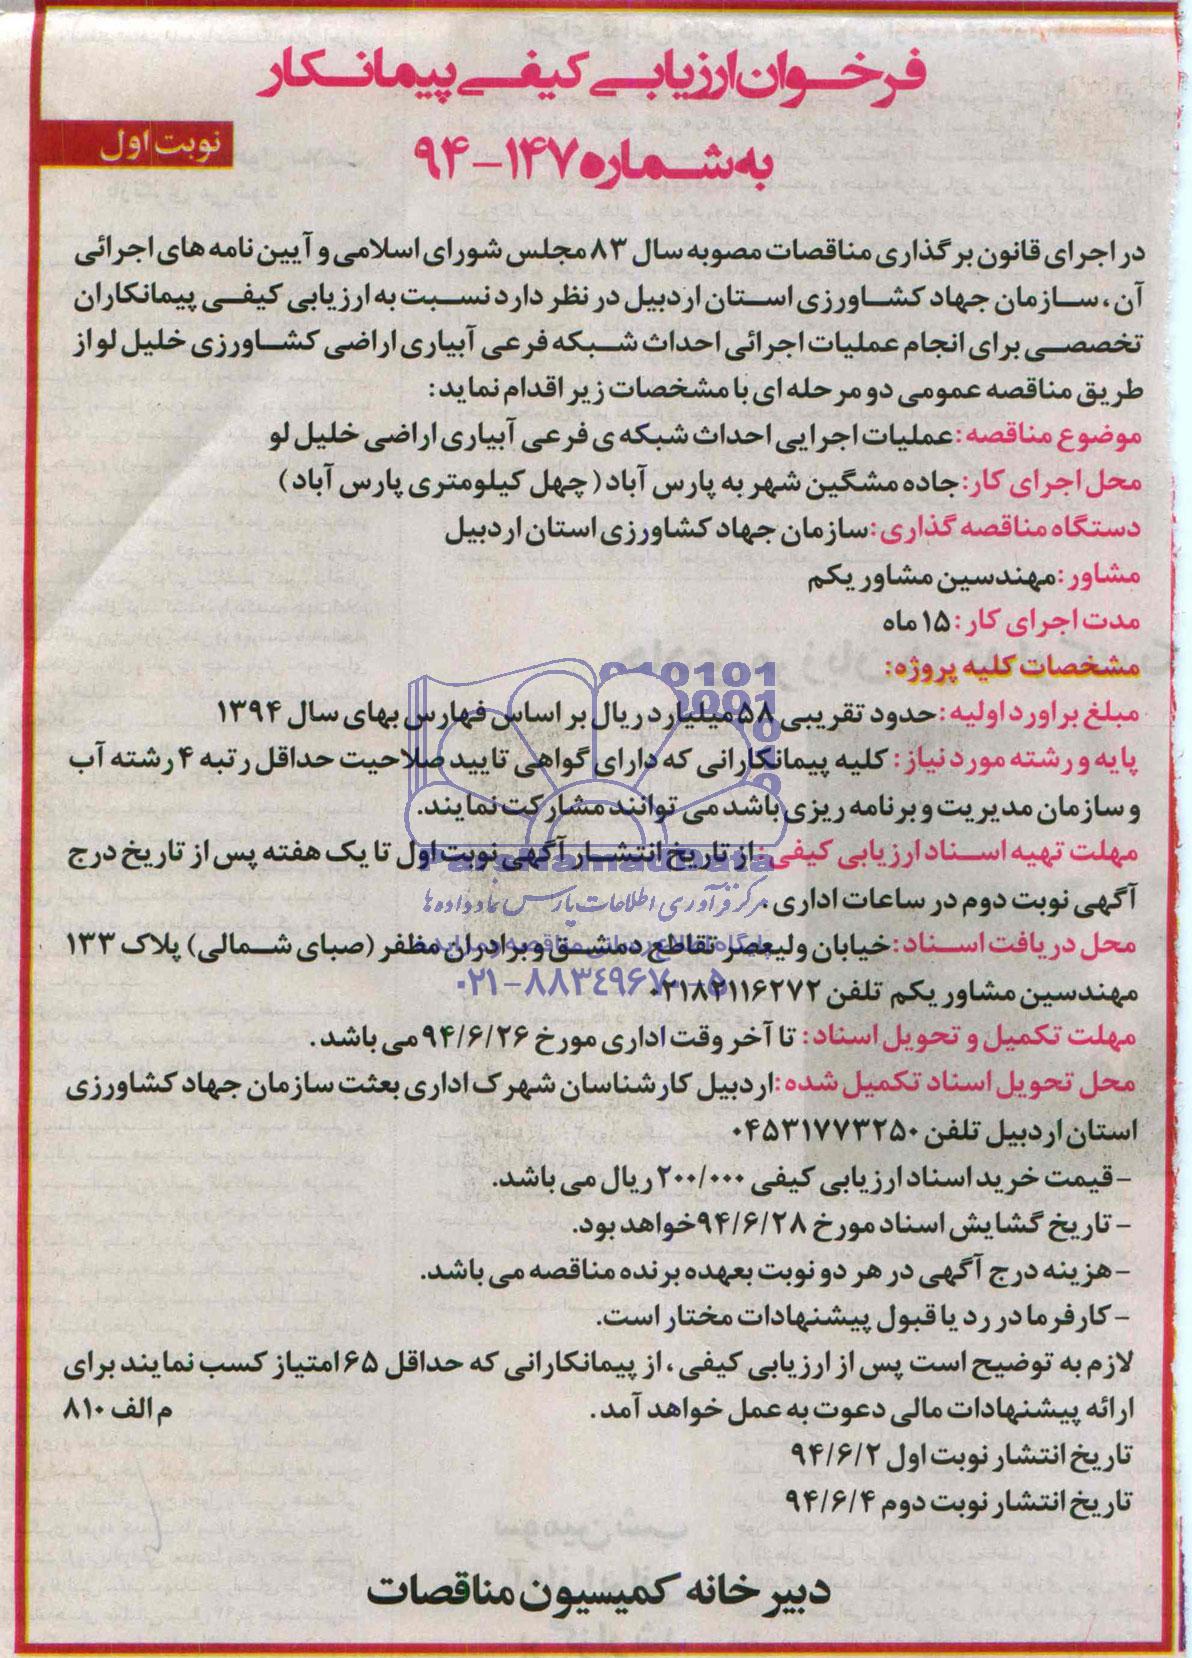 فرخوان ارزیابی کیفی پیمانکار
به شماره ۱۴۷-۹۴
نوبت اول
در اجرای قانون برگذاری مناقصات مصوبه سال ۸۳ مجلس شورای اسلامی و آیین نامه های اجرائی
آن، سازمان جهاد کشاورزی استان اردبیل در نظر دارد نسبت به ارزیابی کیفی پیمانکاران
تخصصی برای انجام عملیات اجرائی احداث شبکه فرعی آبیاری اراضی کشاورزی خلیل لو از
طریق مناقصه عمومی دو مرحله ای با مشخصات زیر اقدام نماید:
موضوع مناقصه: عملیات اجرایی احداث شبکه ی فرعی آبیاری اراضی خلیل لو
محل اجرای کار: جاده مشگین شهر به پارس آباد (چهل کیلومتری پارس آباد)
دستگاه مناقصه گذاری: سازمان جهاد کشاورزی استان اردبیل
مشاور: مهندسین مشاور یکم
مدت اجرای کار: ۱۵ ماه
مشخصات کلیه پروژه:
مبلغ براورد اولیه: حدود تقریبی ۵۸ میلیارد ریال بر اساس فهارس بهای سال ۱۳۹۴
پایه و رشته مورد نیاز: کلیه پیمانکارانی که دارای گواهی تایید صلاحیت حداقل رتبه ۴ رشته آب
و سازمان مدیریت و برنامه ریزی باشد می توانند مشارکت نمایند.
مهلت تهیه اسناد ارزیابی کیفی: از تاریخ انتشار آگهی نوبت اول تا یک هفته پس از تاریخ درج
آگهی نوبت دوم در ساعات اداری.
محل دریافت اسناد: خیابان ولیعصر تقاطع دمشق و برادران مظفر (صبای شمالی) پلاک ۱۳۳
مهندسین مشاور یکم تلفن ۰۲۱۸۲۱۱۶۲۷۲
مهلت تکمیل و تحویل اسناد: تا آخر وقت اداری مورخ ۹۴/۶/۲۶ می باشد.
محل تحویل اسناد تکمیل شده: اردبیل کارشناسان شهرک اداری بعثت سازمان جهاد کشاورزی
استان اردبیل تلفن ۰۴۵۳۱۷۷۳۲۵۰
- قیمت خرید اسناد ارزیابی کیفی ۲۰۰/۰۰۰ ریال می باشد.
- تاریخ گشایش اسناد مورخ ۹۴/۶/۲۸ خواهد بود.
- هزینه درج آگهی در هر دو نوبت بعهده برنده مناقصه می باشد.
- کارفرما در رد یا قبول پیشنهادات مختار است.
لازم به توضیح است پس از ارزیابی کیفی، از پیمانکارانی که حداقل ۶۵ امتیاز کسب نمایند برای
ارائه پیشنهادات مالی دعوت به عمل خواهد آمد. م الف ۸۱۰
تاریخ انتشار نوبت اول ۹۴/۶/۲
تاریخ انتشار نوبت دوم ۹۴/۶/۴
دبیر خانه کمیسیون مناقصات
ParsNamadData
مرکز فرآوری اطلاعات پارس نماد داده ها
۰۲۱-۸۸۳۴۹۶۷۰-۵